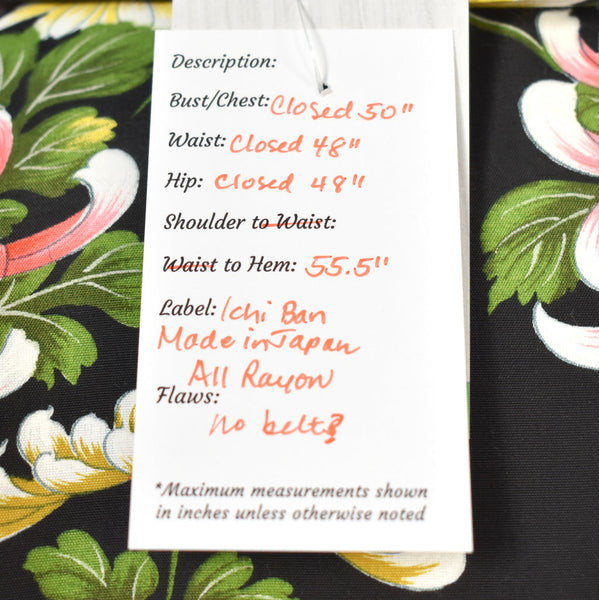 Description:
Bust/Chest: Closed 50"
Waist: Closed 48"
Hip: Closed 48"
Shoulder to Waist:
Waist to Hem: 55.5"
Label: Ichi Ban
Made in Japan
All Rayon
Flaws:
no belt?
*Maximum measurements shown
in inches unless otherwise noted